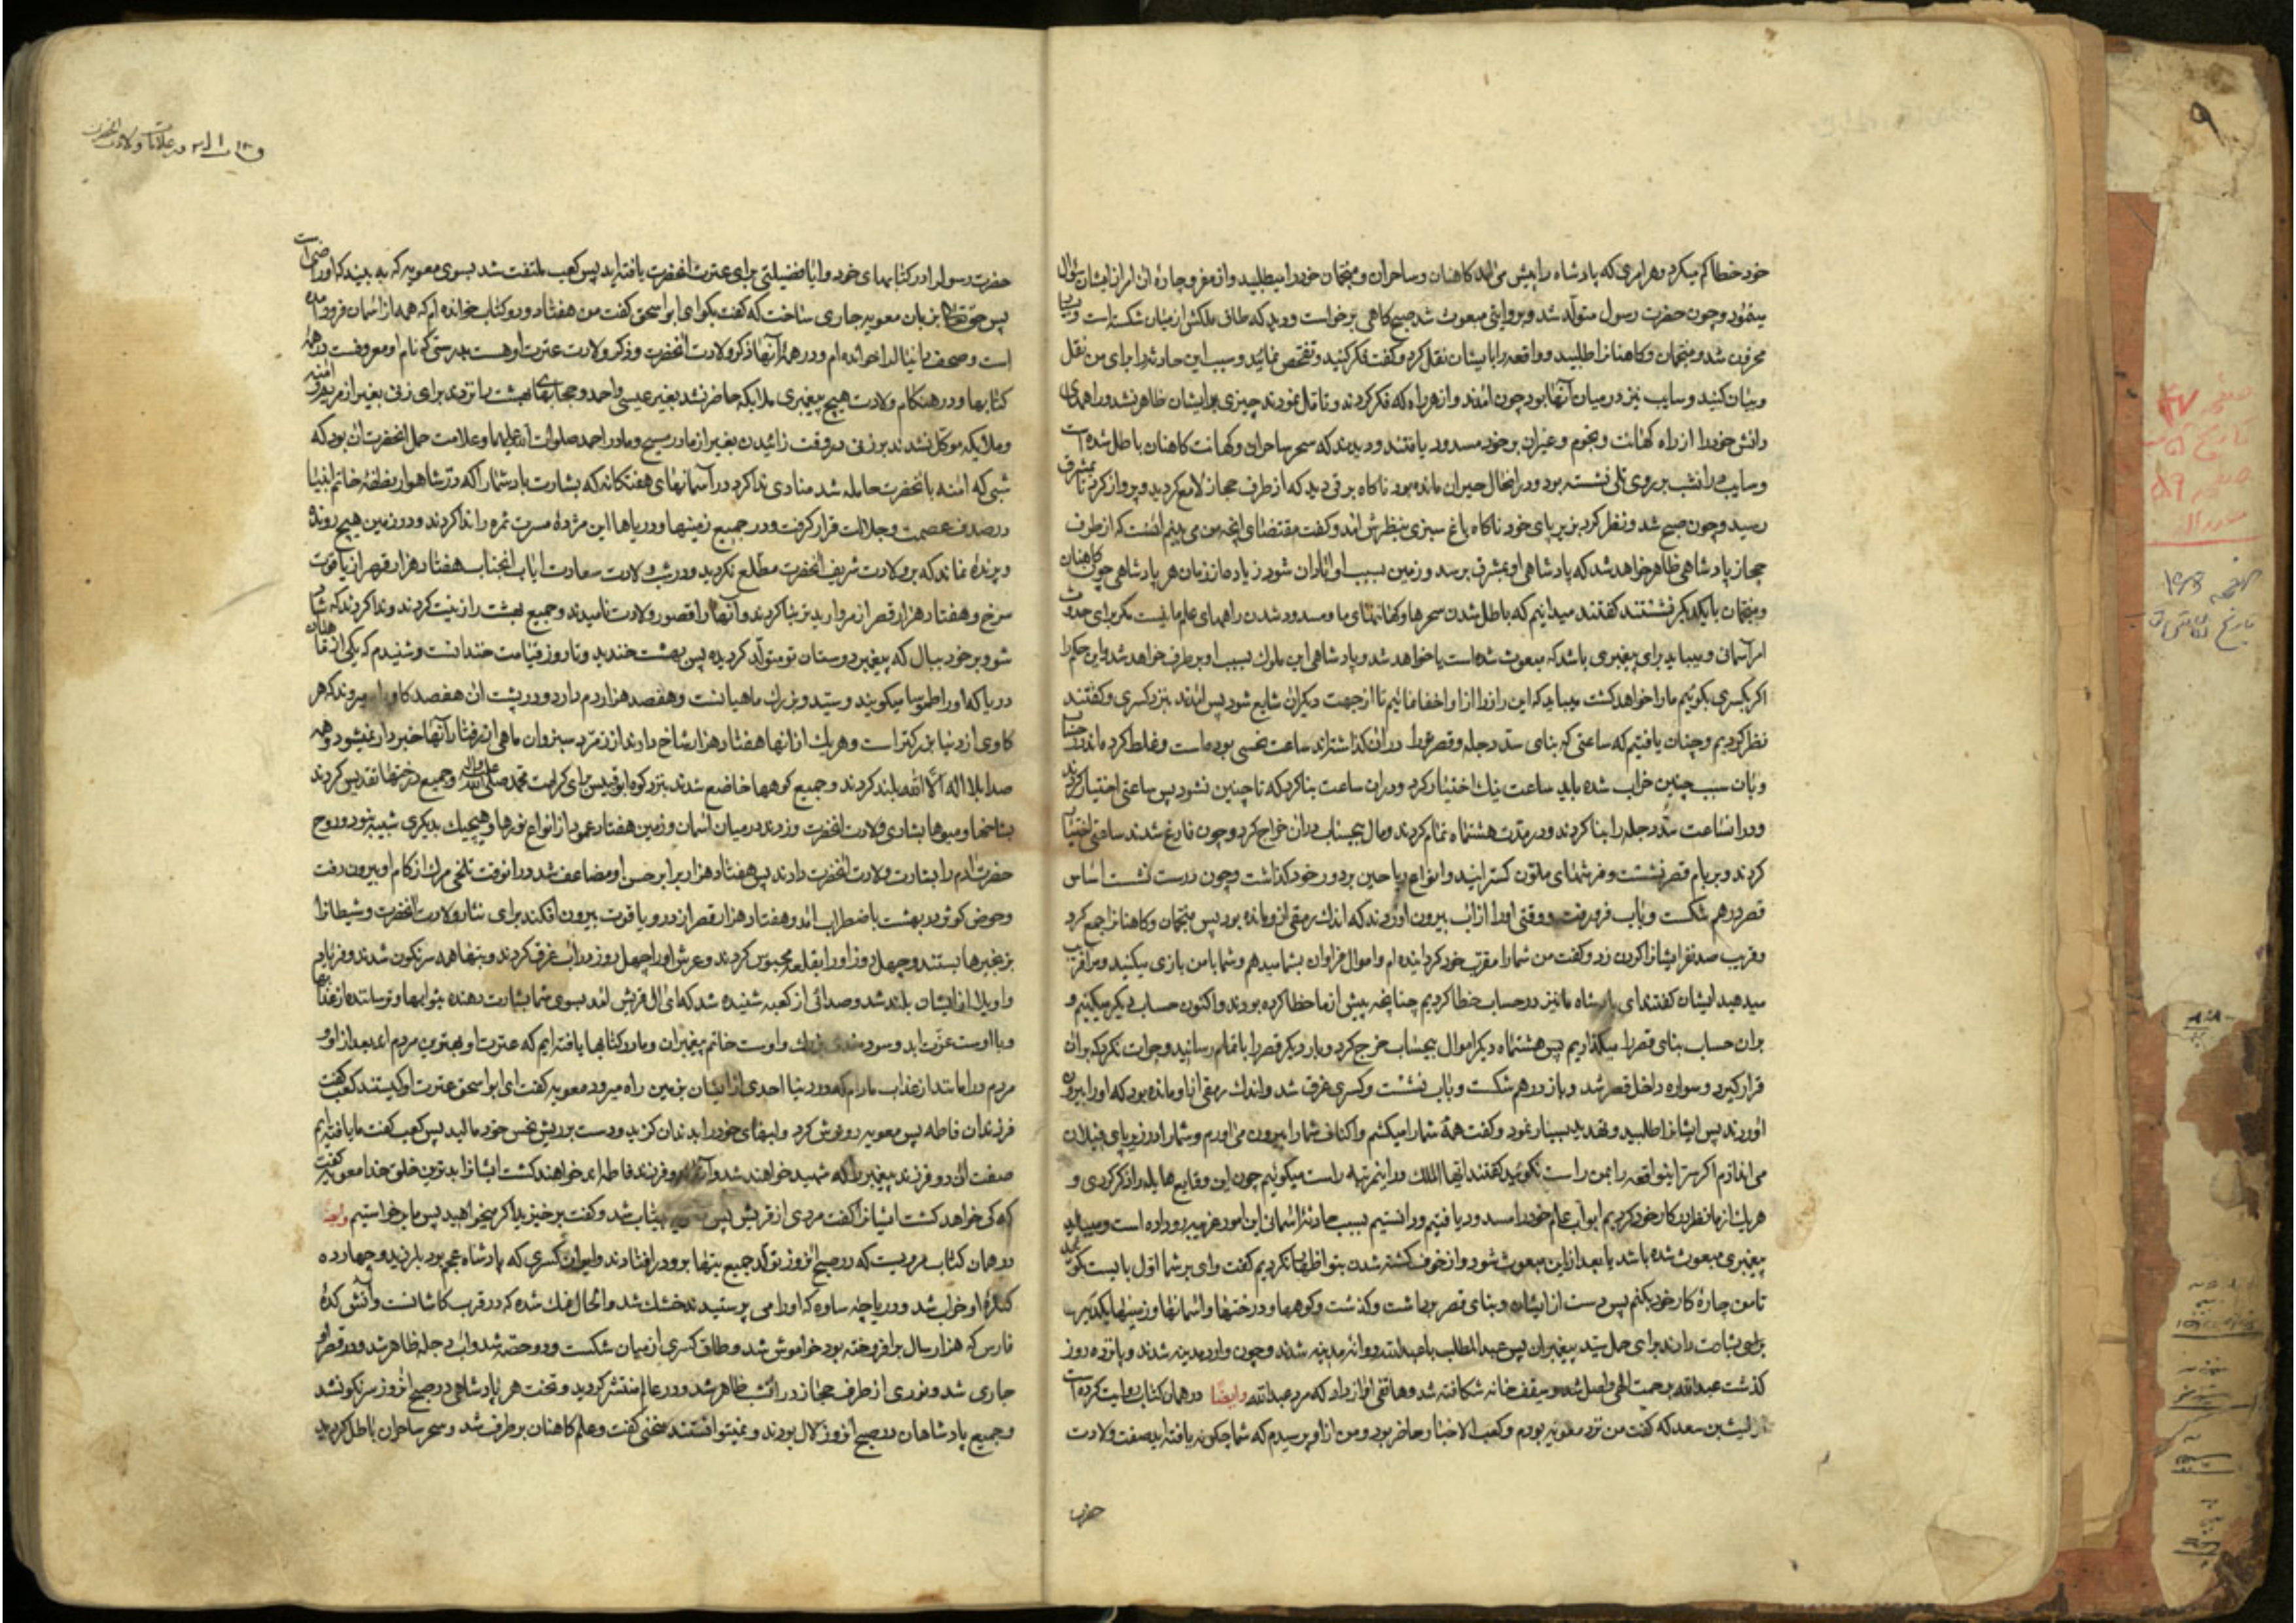 خود خطا کم میکرد و هر امری که پادشاه را پیش می‌آمد کاهنان و ساحران و منجمان خود را میطلبید و از مفر و چارهٔ آن امر از ایشان سؤال
مینمود و چون حضرت رسول متولد شد و بروایتی مبعوث شد صبح کاهی برخواست و دید که طاق ملکش از میان شکسته است
محزون شد و منجمان و کاهنانرا طلبید و واقعه را بایشان نقل کرد و کفت فکر کنید و تفحص نمائید و سبب این حادثه را برای من نقل
و بیان کنید و سایب نیز در میان آنها بود چون آمدند و از هر راه که فکر کردند و تأمل نمودند چیزی بر ایشان ظاهر نشد و راههای
دانش خود را از راه کهانت و نجوم و غیران بر خود مسدود یافتند و دیدند که سحر ساحران و کهانت کاهنان باطل شده است
و سایب در انشب بر روی تلی نشسته بود و در انحال حیران مانده بود ناکاه برقی دید که از طرف حجاز لامع کردید و پرواز کرد تا بمشرق
رسید و چون صبح شد و نظر کرد بزیر پای خود ناکاه باغ سبزی بنظرش آمد و کفت مقتضای انچه من می بینم آنست که از طرف
حجاز پادشاهی ظاهر خواهد شد که پادشاهی او بمشرق برسد و زمین بسبب او آبادان شود زیاده از زمان هر پادشاهی چون کاهنان
و منجمان با یکدیکر نشستند کفتند میدانیم که باطل شدن سحرها و کهانتهای ما و مسدود شدن راههای علم ما نیست مکر برای حدوث
امر آسمانی و میباید برای پیغمبری باشد که مبعوث شده است یا خواهد شد و پادشاهی این ملوک بسبب او بر طرف خواهد شد و این حکم را
اکر بکسری بکوئیم ما را خواهد کشت میباید که این راز را از او اخفا نمائیم تا از جهت دیکران شایع شود پس آمدند بنزد کسری و کفتند
نظر کردیم و چنان یافتیم که ساعتی که بنای سد دجله و قصر در ان کذاشته‌اند ساعت نحسی بوده است و غلط کرده‌اند در حساب
و بان سبب چنین خراب شده باید ساعت نیک اختیار کرد و در ان ساعت بنا کرد که تا چنین نشود پس ساعتی اختیار کردند
و در انساعت سد دجله را بنا کردند و در مدت هشتماه تمام کردند و مال بیحساب در ان خراج کرد و چون فارغ شدند ساعتی اختیار
کردند و بر بام قصر نشست و فرشهای ملون کسترانید و انواع ریاحین بر دور خود کذاشت و چون درست نشست اساس
قصر در هم شکست و باب فرو رفت و وقتی او را از اب بیرون اوردند که اندک رمقی از او مانده بود پس منجمان و کاهنانرا جمع کرد
و قریب صد نفر ایشانرا کردن زد و کفت من شما را مقرب خود کردانیده ام و اموال فراوان بشما میدهم و شما با من بازی میکنید و مرا فریب
میدهید ایشان کفتند ای پادشاه ما نیز در حساب خطا کردیم چنانچه پیش از ما خطا کرده بودند و اکنون حساب دیکر میکنیم و
بران حساب بنای قصر را میکذاریم پس هشتماه دیکر اموال بیحساب خرج کرد و بار دیکر قصر را باتمام رسانید و جرات نکرد که بران
قرار کیرد و سواره داخل قصر شد و باز در هم شکست و باب نشست و کسری غرق شد و اندک رمقی از او مانده بود که او را بیرون
اوردند پس ایشانرا طلبید و تهدید بسیار نمود و کفت همهٔ شما را میکشم و اکتاف شما را بیرون می‌آورم و شما را در زیر پای فیلان
می‌اندازم اکر سر اینواقعه را بمن راست نکوئید کفتند ایها الملک در اینمرتبه راست میکوئیم چون این وقایع هایله را ذکر کردی و
هر یک از ما نظر در کار خود کردیم ابواب علم خود را مسدود یافتیم و دانستیم بسبب حادثهٔ اسمانی این امور غریبه رو داده است و میباید
پیغمبری مبعوث شده باشد یا بعد از این مبعوث شود و از خوف کشته شدن بتو اظهار نکردیم کفت وای بر شما اول بایست کوئید
تا من چارهٔ کار خود بکنم پس دست از ایشان و بنای قصر برداشت و کذشت و کوهها و درختها و اسمانها و زمینها یکدیکر را
برای بشارت دادند برای حمل سید پیغمبران پس عبد المطلب با عبدالله روانهٔ مدینه شدند و چون وارد مدینه شدند و پانزده روز
کذشت عبدالله برحمت الهی واصل شد و سقف خانه شکافته شد و هاتفی اواز داد که مرد عبدالله وایضًا در همان کتاب روایت کرده است
از لیث بن سعد که کفت من نزد معویه بودم و کعب الاحبار حاضر بود و من از او پرسیدم که شما چکونه یافته اید صفت ولادت
حضرت
در علامات ولادت انحضرت
حضرت رسول را در کتابهای خود و ایا فضیلتی برای عترت انحضرت یافته اید پس کعب ملتفت شد بسوی معویه که به بیند که او راضی است
پس حق تعالی بر زبان معویه جاری ساخت که کفت بکو ای ابو اسحق کفت من هفتاد و دو کتاب خوانده ام که همه از اسمان فرود آمده
است و صحف دانیال را خوانده ام و در همهٔ آنها ذکر ولادت انحضرت و ذکر ولادت عترت او هست بدرستی که نام او معروفست در همهٔ
کتابها و در هنکام ولادت هیچ پیغمبری ملایکه حاضر نشد بغیر عیسی و احمد و حجابهای بهشت را نزدند برای زنی بغیر از مریم و آمنه
و ملایکه موکل نشدند بر زنی در وقت زائیدن بغیر از مادر مسیح و مادر احمد صلوات الله علیهما و علامت حمل انحضرت ان بود که
شبی که آمنه بانحضرت حامله شد منادی ندا کرد در آسمانهای هفتکانه که بشارت باد شما را که در شاهوار نطفهٔ خاتم انبیا
در صدف عصمت و جلالت قرار کرفت و در جمیع زمینها و دریاها این مژدهٔ مسرت ثمره را ندا کردند و در زمین هیچ رونده
و پرنده نماند که بر ولادت شریف انحضرت مطلع نکردید و در شب ولادت سعادت ایاب انجناب هفتاد هزار قصر از یاقوت
سرخ و هفتاد هزار قصر از مروارید تر بنا کردند و آنها را قصور ولادت نامیدند و جمیع بهشت را زینت کردند و ندا کردند که شاد
شو و بر خود ببال که پیغمبر دوستان تو متولد کردیده پس بهشت خندید و تا روز قیامت خندانست و شنیدم که یکی از ماهیان
دریا که او را طموسا میکویند و سید و بزرک ماهیانست و هفصد هزار دم دارد و در پشت ان هفصد کاو راه میروند که هر
کاوی از دنیا بزرکتر است و هر یک از انها هفتاد هزار شاخ دارند از زمرد سبز و ان ماهی از رفتار آنها خبردار نمیشود و همه
صدا بلا اله الا الله بلند کردند و جمیع کوهها خاضع شدند نزد کوه ابو قبیس برای کرامت محمد صلی الله علیه واله و جمیع درختها تقدیس کردند
بشاخها و میوها بشادی ولادت انحضرت و زدند در میان اسمان و زمین هفتاد عمود از انواع نورها و هیچیک بدیکری شبیه نبود و روح
حضرت ادم را بشارت ولادت انحضرت دادند پس هفتاد هزار برابر حسن او مضاعف شد و در انوقت تلخی مرک از کام او بیرون رفت
و حوض کوثر در بهشت باضطراب آمد و هفتاد هزار قصر از در و یاقوت بیرون افکند برای نثار ولادت انحضرت و شیطانرا
بزنجیرها بستند و چهل روز او را بقلعه محبوس کردند و عرش او را چهل روز در اب غرق کردند و بتها همه سرنکون شدند و فریاد
واویلا از ایشان بلند شد و صدائی از کعبه شنیده شد که ای ال قریش آمد بسوی شما بشارت دهنده بثوابها و ترساننده از عذابها
و با اوست عزت ابد و سودمندی بزرک و اوست خاتم پیغمبران و ما در کتابها یافته ایم که عترت او بهترین مردم اند بعد از او و
مردم در امانند از عذاب مادام که در دنیا احدی از ایشان بر زمین راه میرود معویه کفت ای ابو اسحق عترت او کیستند کعب کفت
فرزندان فاطمه پس معویه رو ترش کرد و لبهای خود را بدندان کزید و دست بر ریش نحس خود مالید پس کعب کفت ما یافته ایم
صفت ان دو فرزند پیغمبر را که شهید خواهند شد و آنها دو فرزند فاطمه اند خواهند کشت ایشانرا بدترین خلق خدا معویه کفت
که کی خواهد کشت ایشانرا کفت مردی از قریش پس بیتاب شد و کفت برخیزید اکر میخواهید پس ما برخواستیم وایضًا
در همان کتاب مرویست که در صبح انروز تولد جمیع بتها برو در افتادند و ایوان کسری که پادشاه عجم بود بلرزید و چهارده
کنکرهٔ او خراب شد و دریاچهٔ ساوه که او را می پرستیدند خشک شد و الحال نمک شده که در قرب کاشانست و آتش کدهٔ
فارس که هزار سال برافروخته بود خواموش شد و طاق کسری از میان شکست و دو حصه شد و اب دجله ظاهر شد و در قصر او
جاری شد و نوری از طرف حجاز در انشب ظاهر شد و در عالم منتشر کردید و تخت هر پادشاهی در صبح انروز سرنکون شد
و جمیع پادشاهان در صبح انروز لال بودند و نمیتوانستند سخنی کفت و علم کاهنان بر طرف شد و سحر ساحران باطل کردید